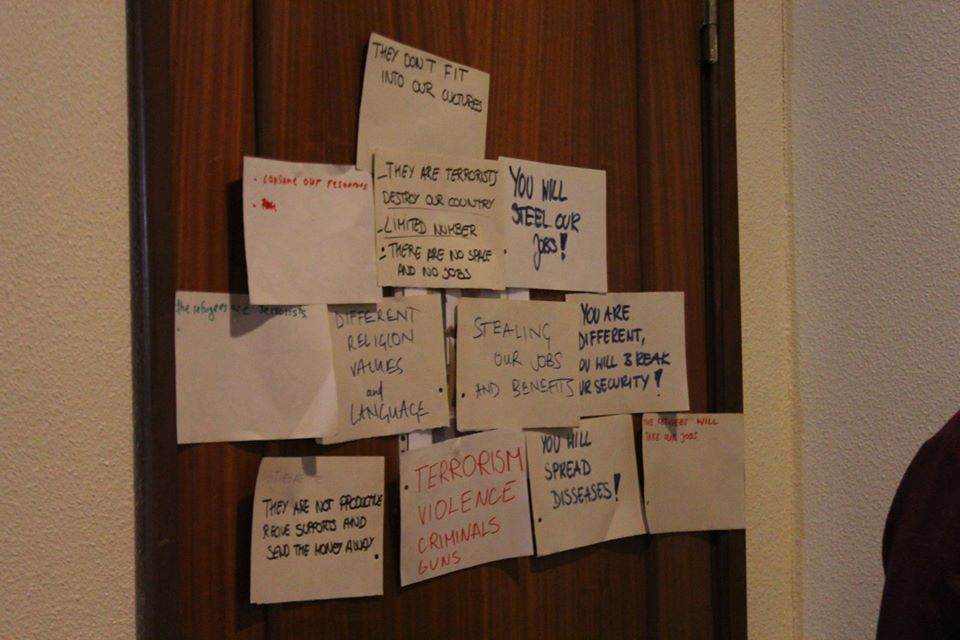 THEY DON'T FIT
INTO OUR CULTURES
- consume our resources
-
- THEY ARE TERRORISTS
DESTROY OUR COUNTRY
- LIMITED NUMBER
- THERE ARE NO SPACE
AND NO JOBS
YOU WILL
STEEL OUR
JOBS!
the refugees are terrorists
DIFFERENT
RELIGION
VALUES
and
LANGUAGE
STEALING
OUR JOBS
AND BENEFITS
YOU ARE
DIFFERENT,
OU WILL BREAK
UR SECURITY!
THEY ARE NOT PRODUCTIVE
SUPPORTS AND
SEND THE MONEY AWAY
TERRORISM
VIOLENCE
CRIMINALS
GUNS
YOU WILL
SPREAD
DISSEASES!
THE REFUGEES WILL
TAKE OUR JOBS